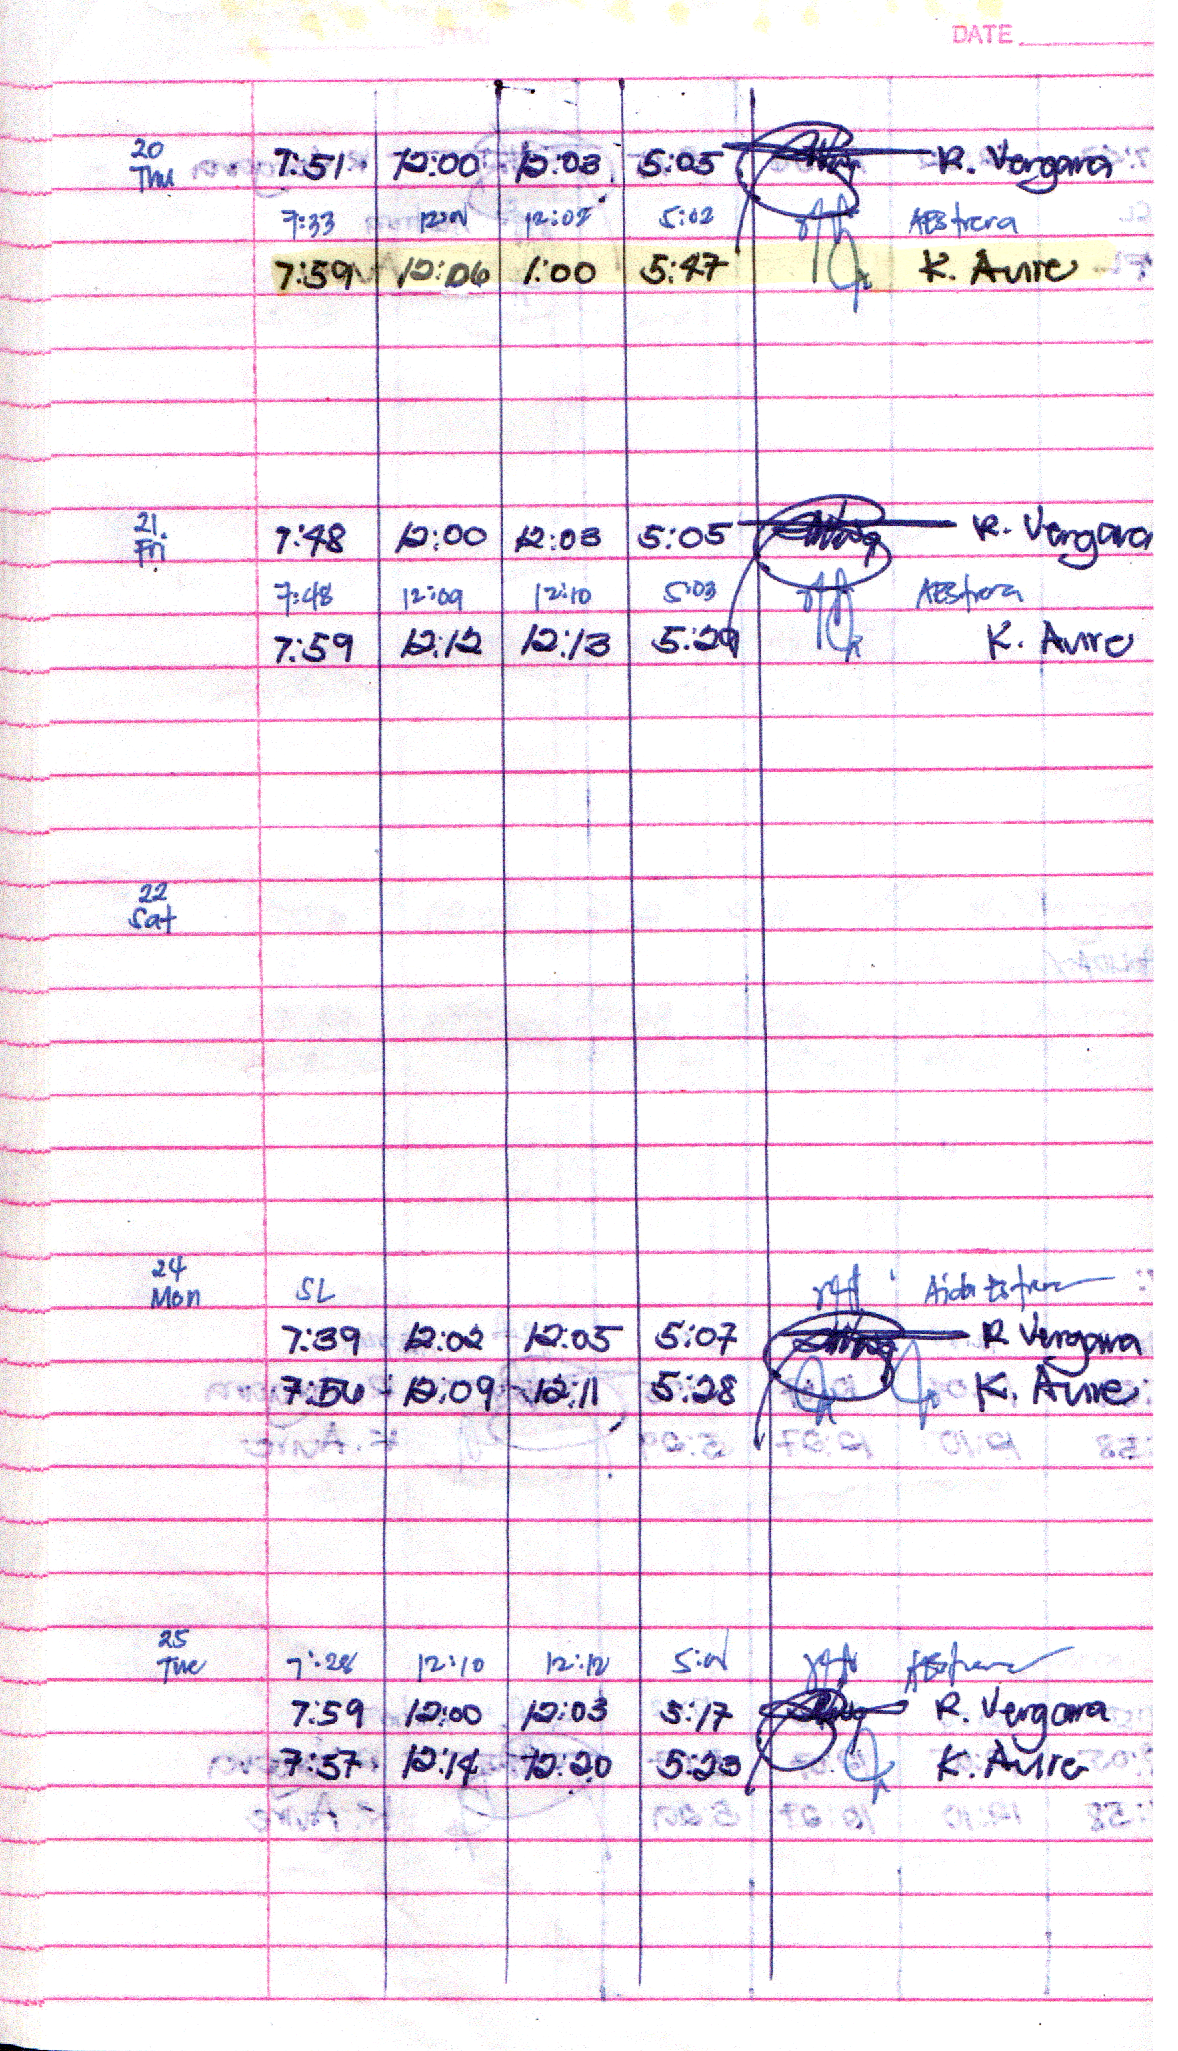 DATE
20
Thu
7:51 12:00 12:03 5:05 R. Vergara
7:33 12:01 12:02 5:02 AEstrera
7:59 12:06 1:00 5:47 K. Avire
21
Fri
7:48 12:00 12:03 5:05 R. Vergara
7:48 12:09 12:10 5:03 AEstrera
7:59 12:12 12:13 5:29 K. Avire
22
Sat
24
Mon
SL Aida Estrera
7:39 12:02 12:05 5:07 R Vergara
7:56 12:09 12:11 5:28 K. Avire
25
Tue
7:28 12:10 12:12 AEstrera
7:59 12:00 12:03 5:17 R. Vergara
7:57 12:14 12:20 5:23 K. Avire